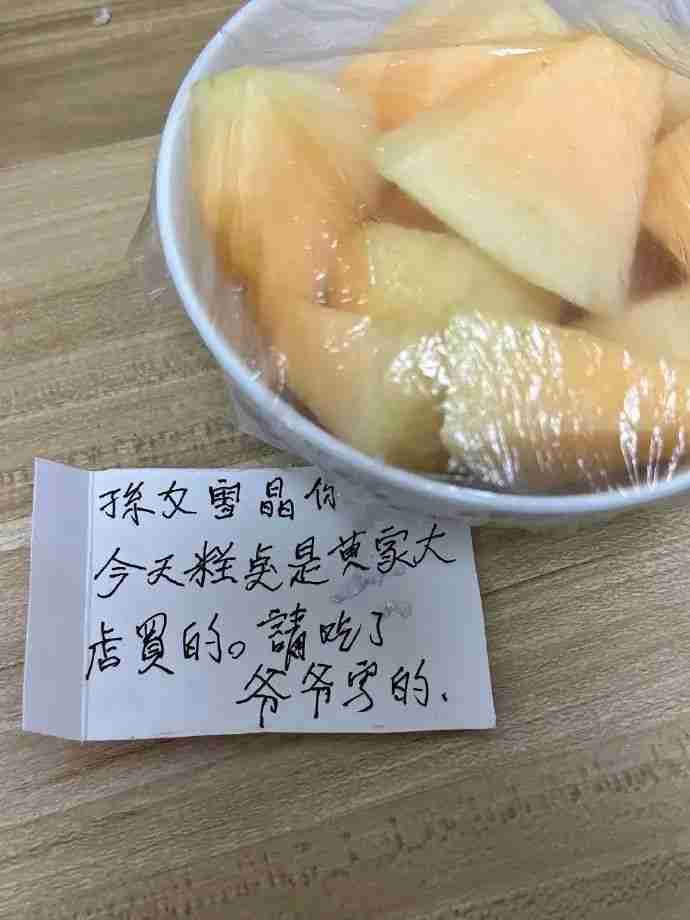 孫女雪晶你
今天糕桌是黄家大
店買的。請吃了
爷爷写的、